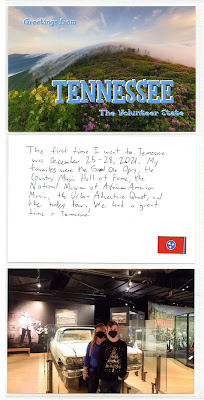 Greetings from
TENNESSEE
The Volunteer State
The first time I went to Tennessee
was December 25-28, 2021. My
favorites were the Grand Ole Opry, the
Country Music Hall of Fame, the
National Museum of African American
Music, the Urban Adventure Quest, and
the trolley tour. We had a great
time in Tennessee!